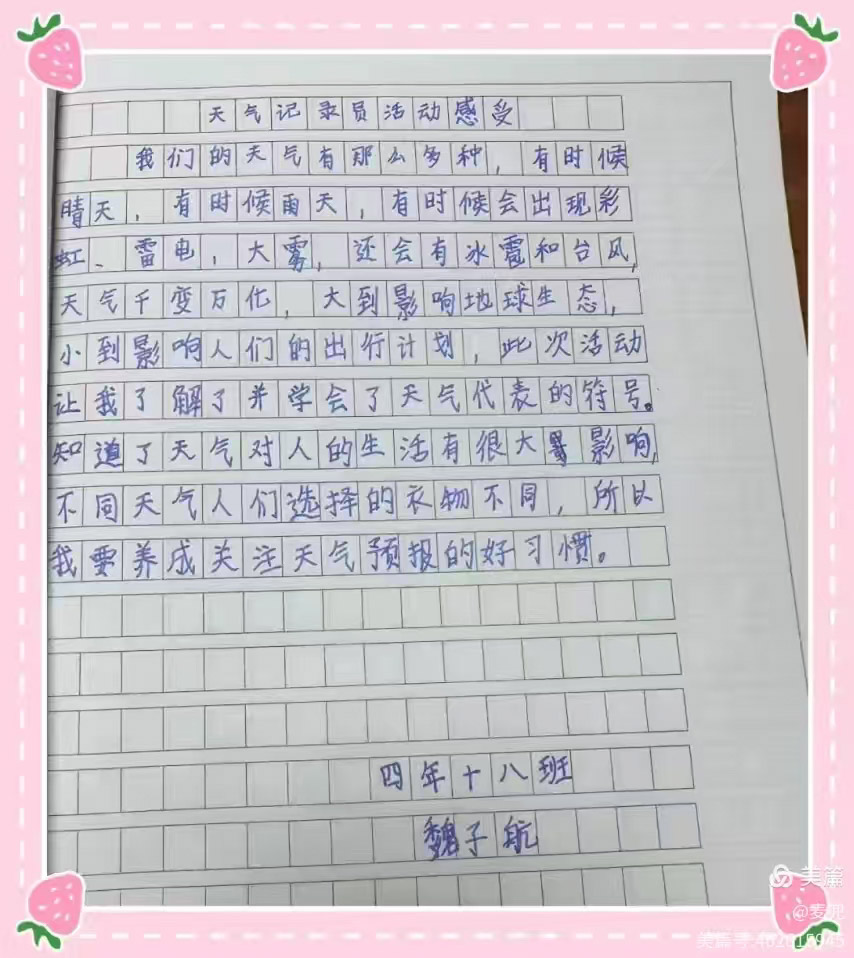 天气记录员活动感受
我们的天气有那么多种，有时候
晴天，有时候雨天，有时候会出现彩
虹、雷电，大雾，还会有冰雹和台风，
天气千变万化，大到影响地球生态，
小到影响人们的出行计划，此次活动
让我了解了并学会了天气代表的符号。
知道了天气对人的生活有很大影响，
不同天气人们选择的衣物不同，所以
我要养成关注天气预报的好习惯。
四年十八班
魏子航
美篇
@麦兜